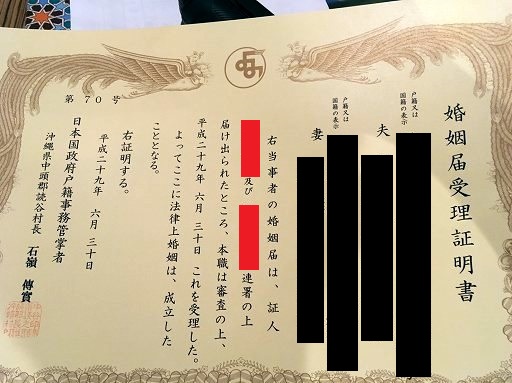 婚姻届受理証明書
戸籍又は
国籍の表示
夫
戸籍又は
国籍の表示
妻
右当事者の婚姻届は、証人
及び
連署の上
届け出られたところ、本職は審査の上、
平成二十九年 六月 三十日 これを受理した。
よってここに法律上婚姻は、成立した
こととなる。
第 70 号
右証明する。
平成二十九年 六月 三十日
日本国政府戸籍事務管掌者
沖縄県中頭郡読谷村長 石嶺 傳實